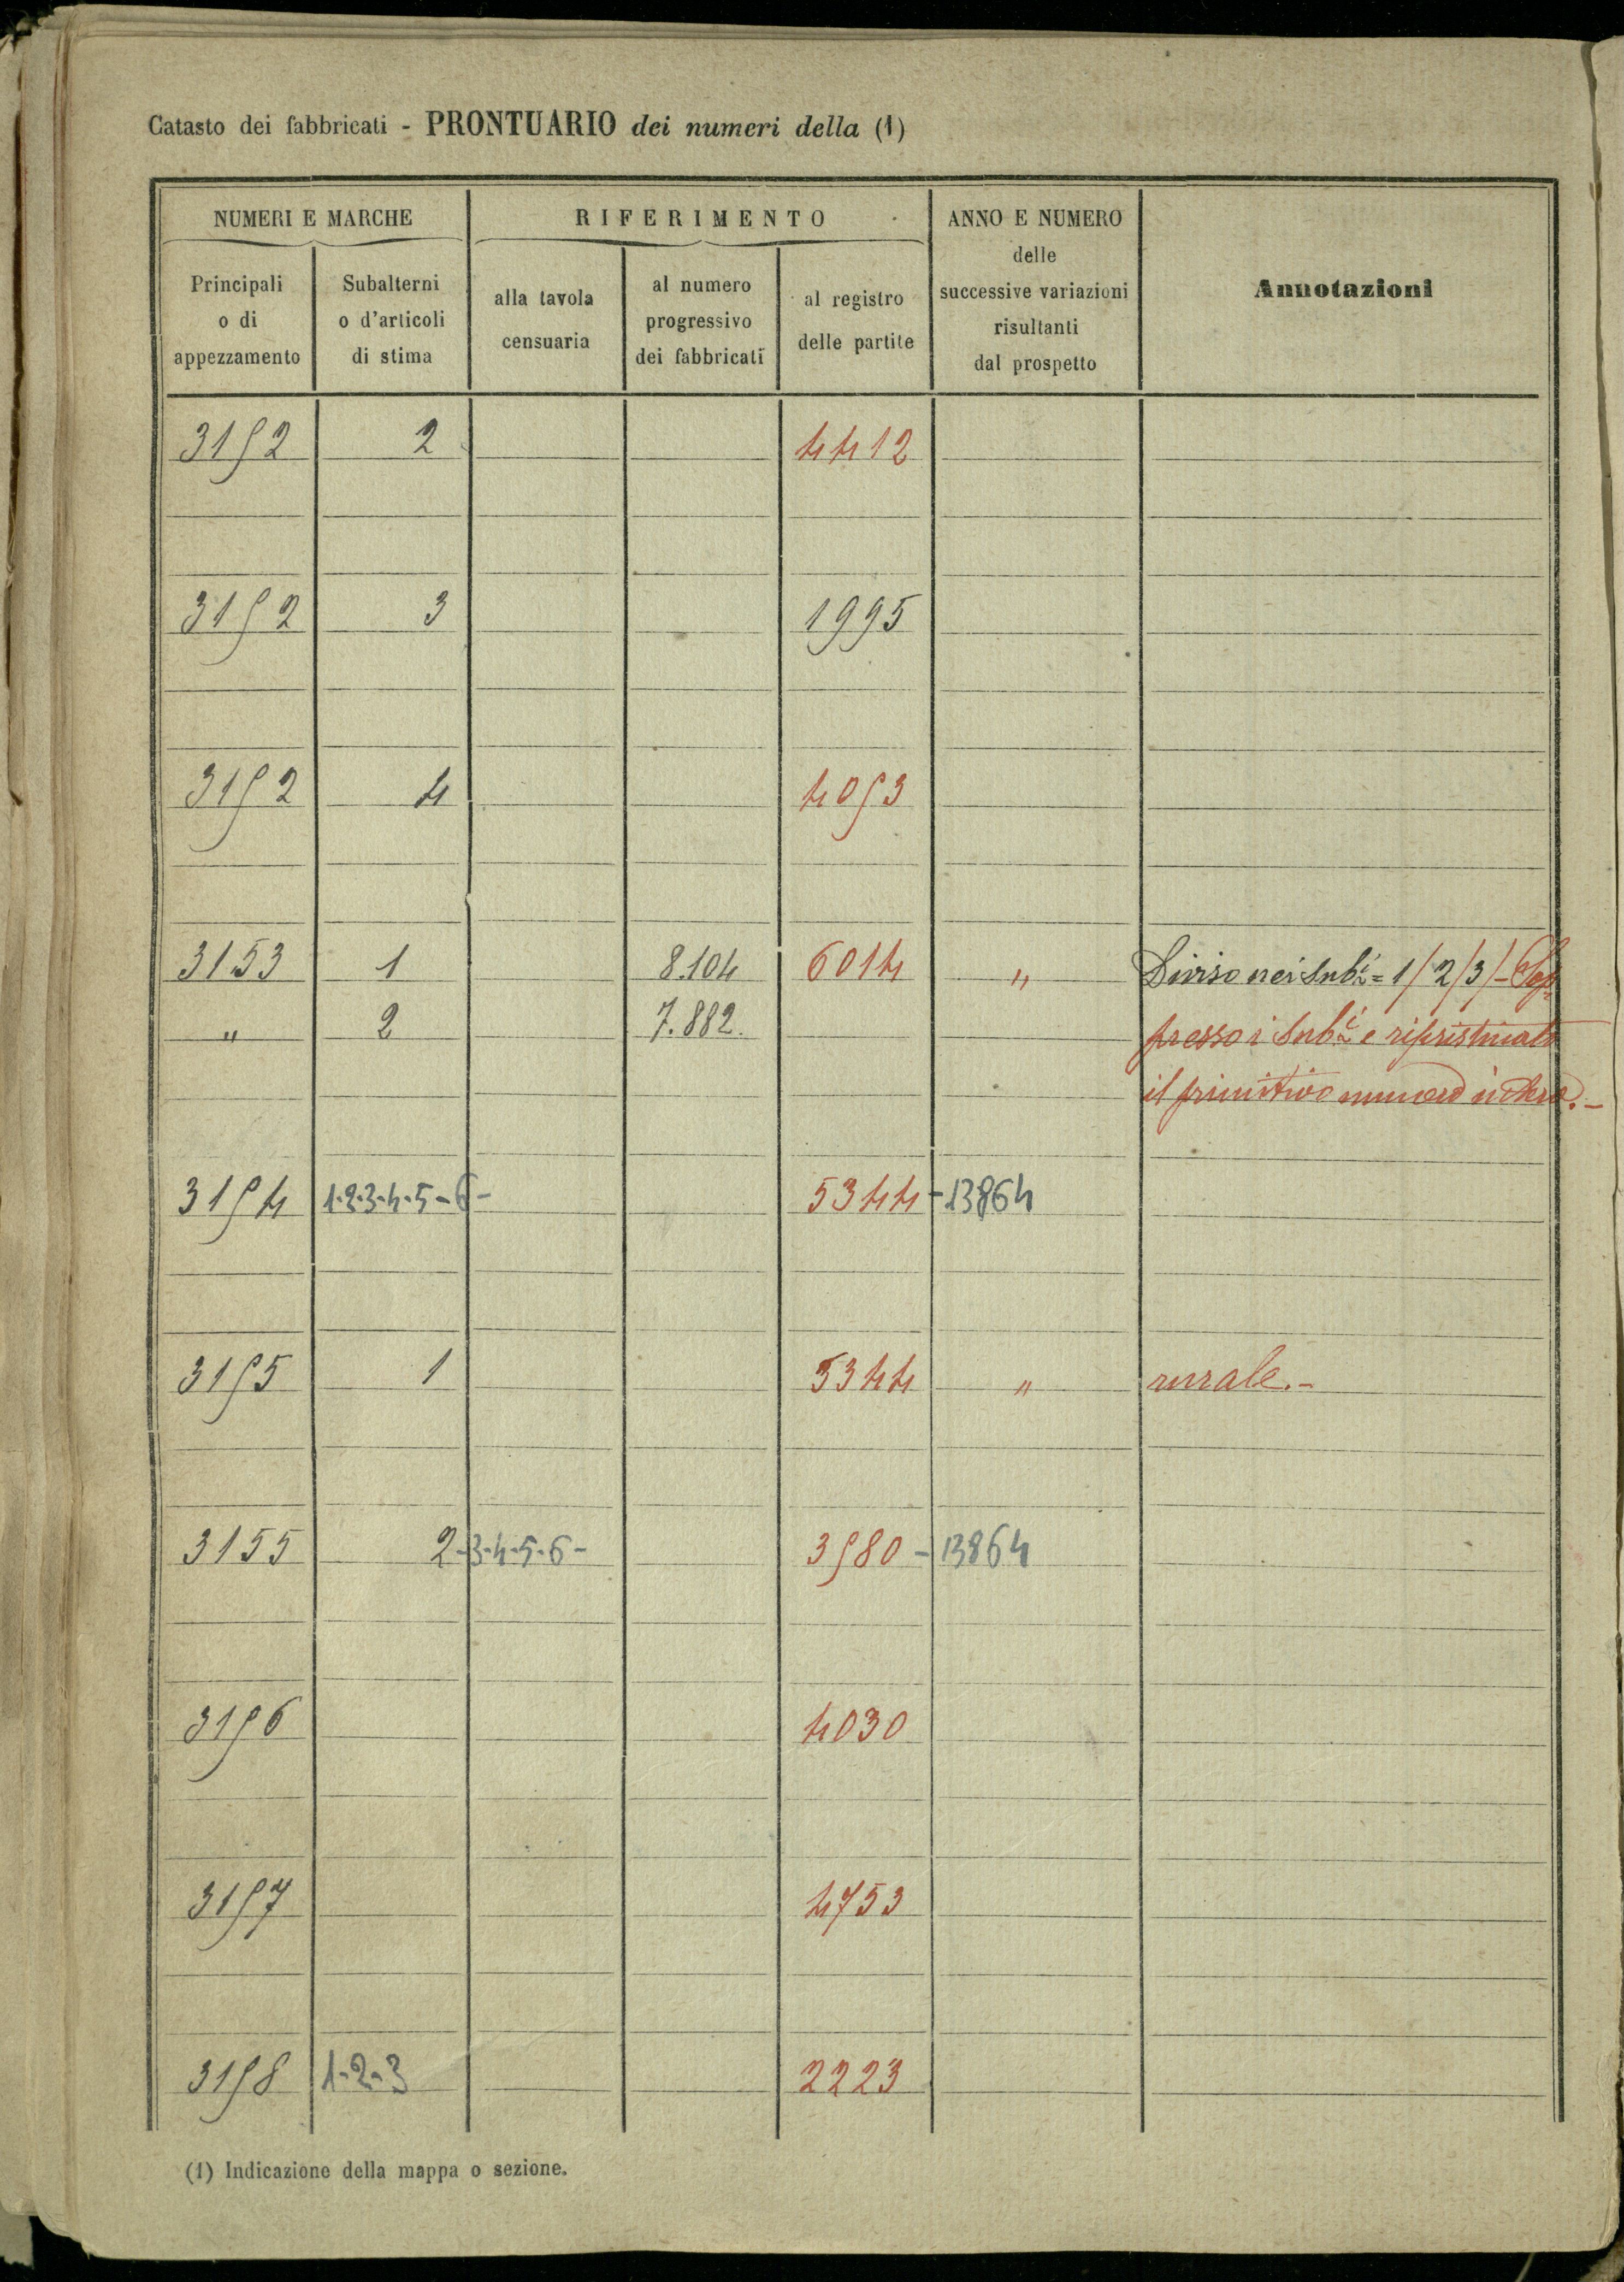 Catasto dei fabbricati - PRONTUARIO dei numeri della (1)
NUMERI E MARCHE
RIFERIMENTO
ANNO E NUMERO
delle
successive variazioni
risultanti
dal prospetto
Annotazioni
Principali
o di
appezzamento
Subalterni
o d'articoli
di stima
alla tavola
censuaria
al numero
progressivo
dei fabbricati
al registro
delle partite
3152 2 4412
3152 3 1995
3152 4 4053
3153 1 8.104 6014 " Diviso nei Sub.i = 1/2/3/- Sop=
" 2 7.882. presso i Sub.i e ripristinato
il primitivo numero intero.-
3154 1-2-3-4-5-6- 5344-13864
3155 1 5344 " rurale.-
3155 2-3-4-5-6- 3580-13864
3156 4030
3157 4753
3158 1-2-3 2223
(1) Indicazione della mappa o sezione.